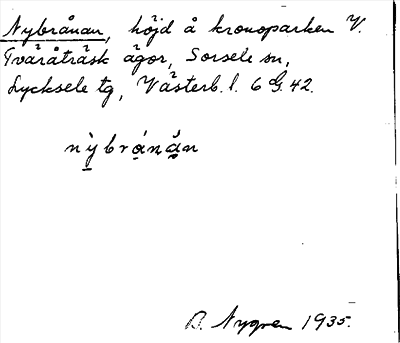 Nybrånan, höjd å kronoparken V.
Tväråträsk ägor, Sorsele sn,
Lycksele tg, Västerb. l. 6 G. 42.
nỳ̠brá̤nå̤n
D. Nygren 1935.